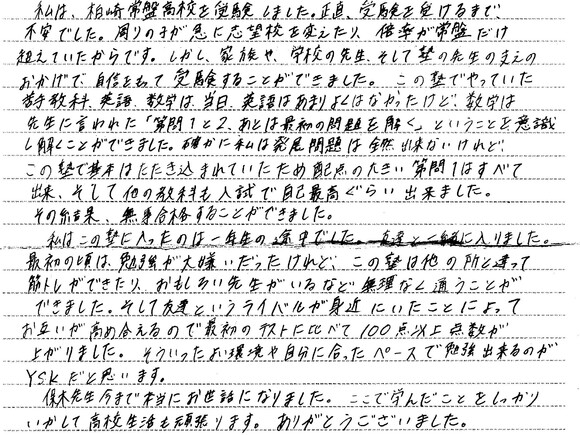 私は、柏崎常盤高校を受験しました。正直、受験を受けるまで、
不安でした。周りの子が急に志望校を変えたり、倍率が常盤だけ
超えていたからです。しかし、家族や、学校の先生、そして塾の先生の支えの
おかげで、自信をもって受験することができました。この塾でやっていた
苦手教科、英語、数学は、当日、英語はあまりよくはなかったけど、数学は
先生に言われた「第問1と2、あとは最初の問題を解く」ということを意識
し解くことができました。確かに私は発展問題は全然出来ないけれど、
この塾で基本はたたき込まれていたため配点の大きい第問1はすべて
出来、そして他の教科も入試で自己最高ぐらい出来ました。
その結果、無事合格することができました。
私はこの塾に入ったのは一年生の途中でした。友達と一緒に入りました。
最初の頃は、勉強が大嫌いだったけれど、この塾は他の所と違って
筋トレができたり、おもしろい先生がいるなど無理なく通うことが
できました。そして友達というライバルが身近にいたことによって
お互いが高め合えるので最初のテストに比べて100点以上点数が
上がりました。そういったよい環境や自分に合ったペースで勉強出来るのが
YSKだと思います。
保木先生今まで本当にお世話になりました。ここで学んだことをしっかり
いかして高校生活も頑張ります。ありがとうございました。